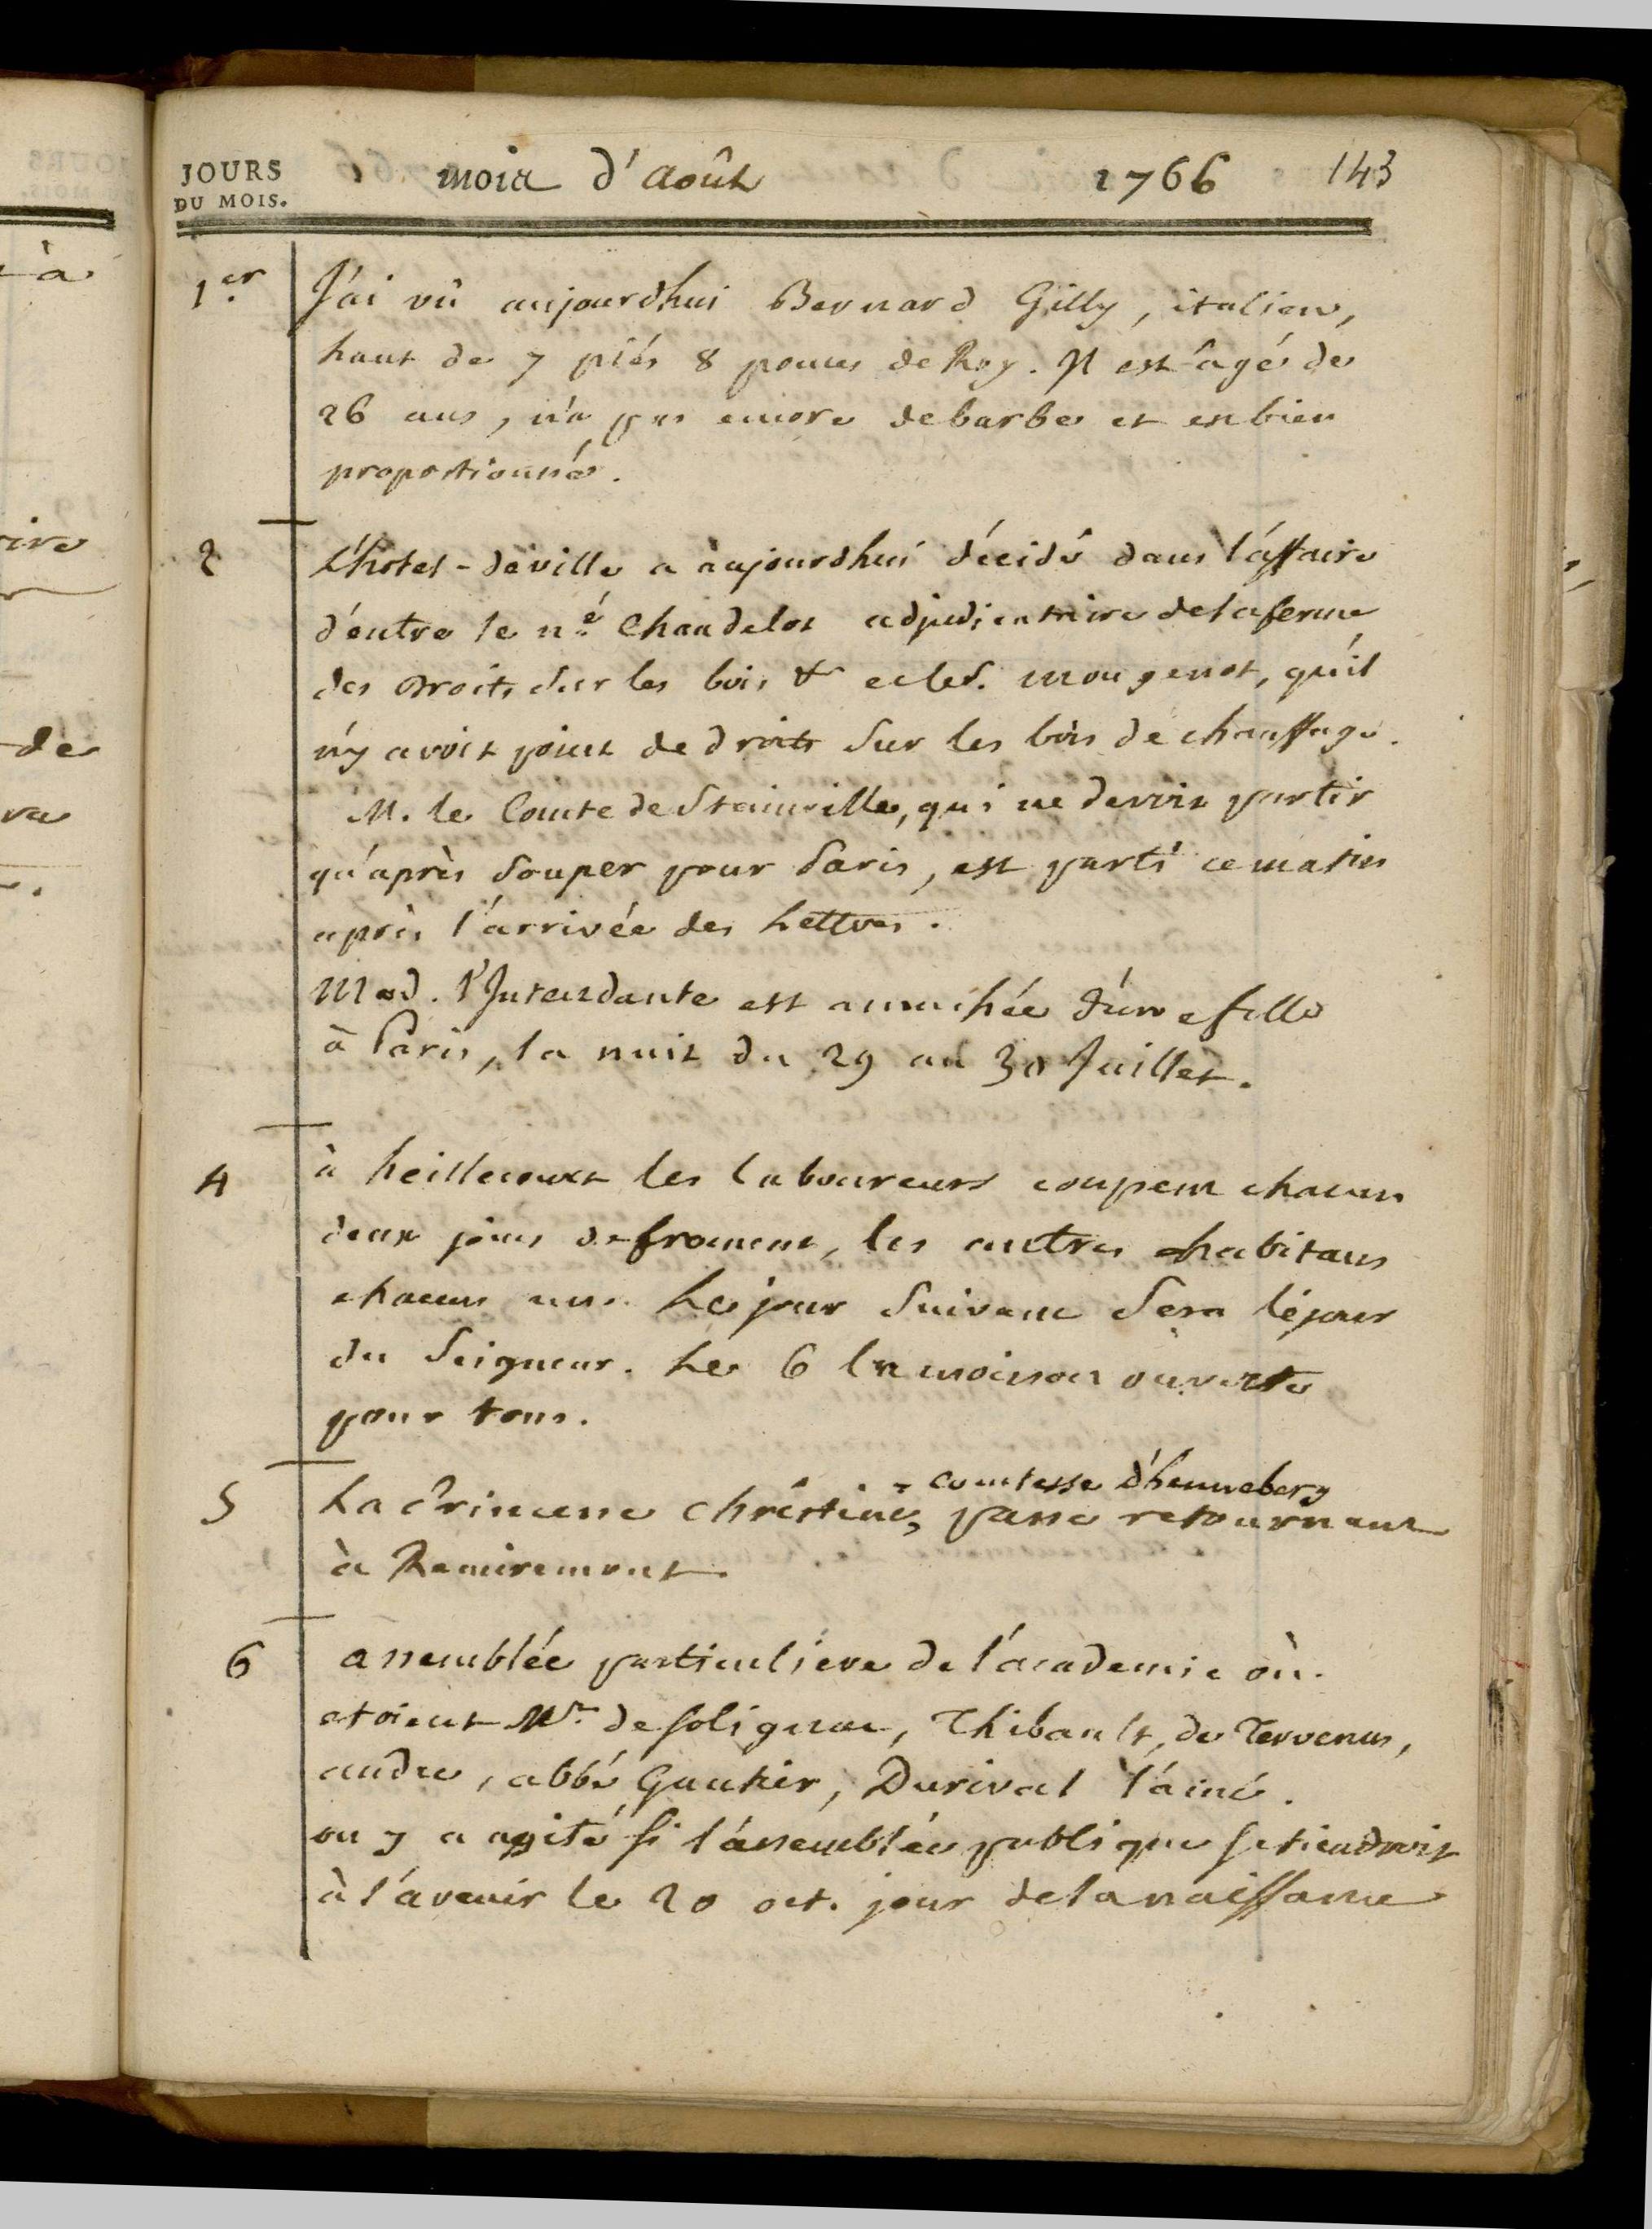 JOURS
DU MOIS.
mois d'Août 1766 143
1er J'ai vû aujourdhui Bernard Gilly, italien,
haut de 7 piés 8 pouces de Roy. Il est âgé de
26 ans, n'a pas encore de barbe et est bien
proportionné.
2 L'hotel-de ville a aujourdhui décidé dans l'affaire
d'entre le n.é Chandelot adjudicataire de la ferme
des droits sur les bois &c et le S. Mougenot, qu'il
n'y avoit point de droits sur les bois de chauffage.
M. le Comte de Stainville, qui ne devoit partir
qu'après souper pour Paris, est parti ce matin
après l'arrivée des Lettres.
Mad. l'Intendante est accouchée d'une fille
à Paris, la nuit du 29 au 30 Juillet.
4 à heillecourt les laboureurs coupent chacun
deux jours de froment, les autres habitans
chacun un. Le jour suivant sera le jour
du Seigneur. Le 6 la moisson ouverte
pour tous.
5 La Princesse Christine, comtesse d'henneberg
passe retournant
à Remiremont.
6 assemblée particuliere de l'académie où
etoient Mrs de Solignac, Thibault, de Tervenus,
andré, abbé Gautier, Durival l'ainé.
on y a agité si l'assemblée publique se tiendroit
à l'avenir le 20 oct. jour de la naissance
à
ive
de